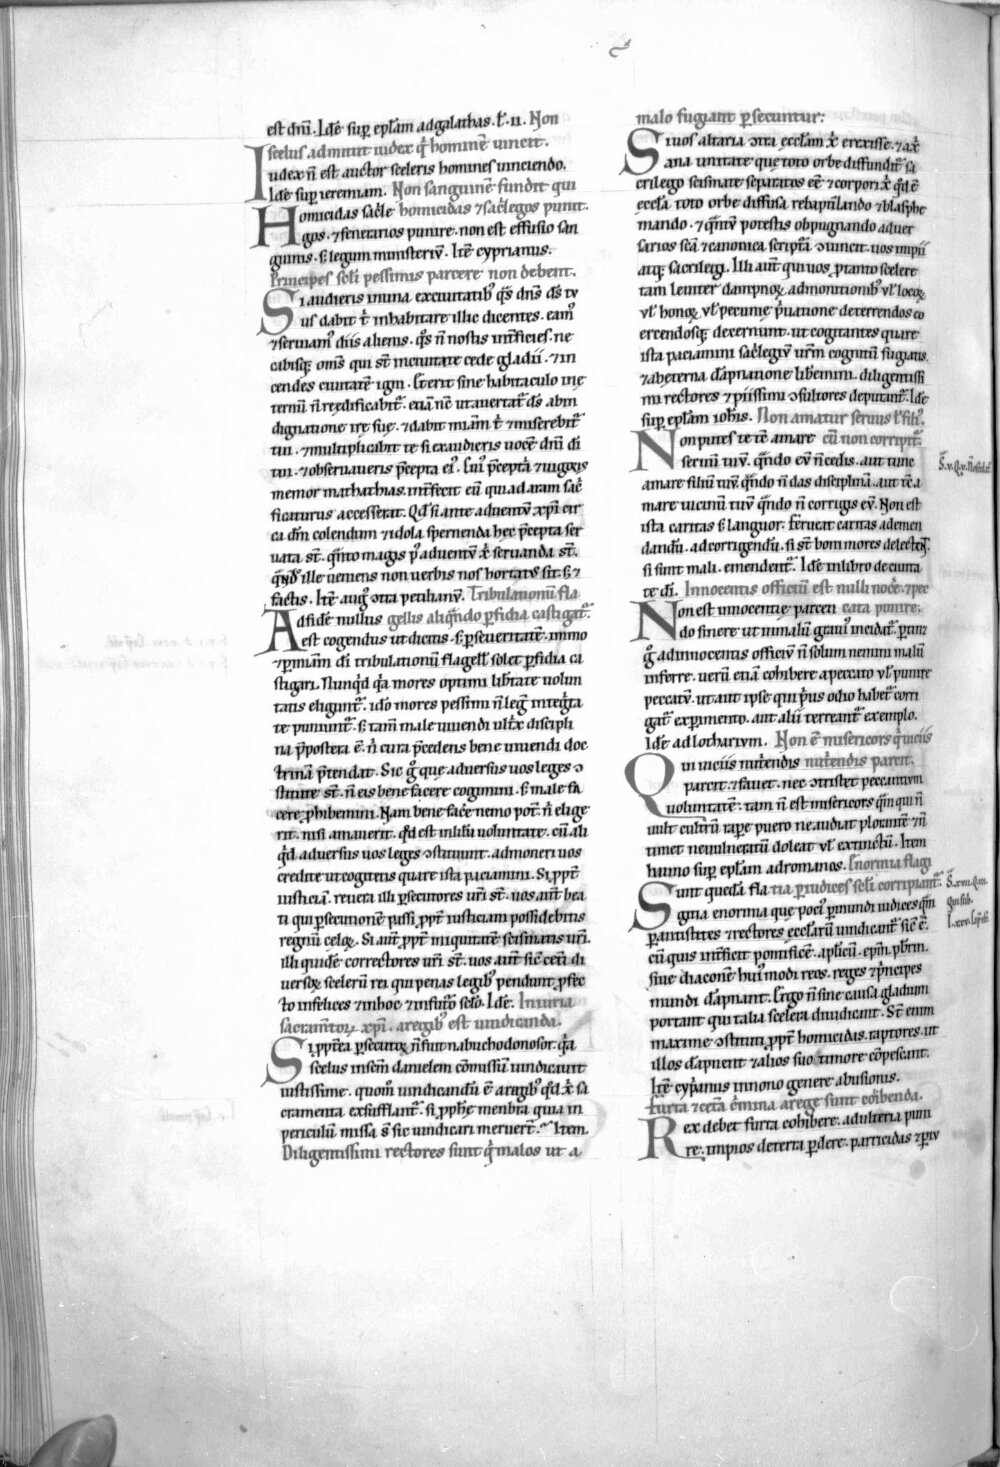 est dnī. Idē sup̄ ep̄lam ad galathas. t̄. ii. Non
scelus admittit iudex q̇ hominē uincit.
Iudex n̄ est auctor sceleris homines uinciendo.
Idē sup̄ ieremiam. Non sanguinē fundit qui
homicidas ⁊ sac̄legos punit.
Homicidas sac̄le
gos. ⁊ uenenarios punire. non est effusio san
guinis. s; legum ministeriū. Itē cyprianus.
Principes sc̄li pessimis parcere non debent.
Si audieris in una ex ciuitatib; q̄s dn̄s dš tu
us dabit t̄ inhabitare illic dicentes. eam;
⁊ seruiam; diis alienis. q̄s n̄ nostis int̄ficies. ne
cabisq; om̄s qui st̄ in ciuitate cede gladii. ⁊ in
cendes ciuitatē igni. ⁊ erit sine habitaculo in ę
ternū n̄ reędificabit̄. etiā nē ut auertat̄ dš ab in
dignatione irę suę. ⁊ dabit miam̄ t̄ ⁊ miserebit̄
tui. ⁊ multiplicabit te si exaudieris uocē dn̄i dī
tui. ⁊ obseruaueris p̄cepta ei;. Cui; p̄cepti ⁊ uigoris
memor mathathias. int̄fecit eū qui ad aram sac̄
ficaturus accesserat. Qd̄ si ante aduentū xp̄i cir
ca dm̄ colendum ⁊ idola spernenda hec p̄cepta ser
uata st̄. q̄nto magis p; aduentū x̄ī seruanda st̄.
q̄ndo ille ueniens non uerbis nos hortat; sit. s; ⁊
factis. Itē aug; ɔtra petilianū. Tribulationū fla
gellis aliq̄ndo p̄fidia castigat̄.
Ad fidē nullus
est cogendus inuitus. s; p̄ seueritatē. immo
⁊ p̄ miam̄ dī tribulationū flagell̄ solet p̄fidia ca
stigari. Nunq̇d q̇a mores optimi lib̄tate uolun
tatis eligunt̄. ido mores pessimi n̄ leg; inteġta
te puniunt̄. s; tam̄ male uiuendi ult̄x discipli
na p̄postera ē. n̄ cura p̄cedens bene uiuendi doc
trinā p̄tendat. Sic g̊ que aduersus uos leges ɔ
stitute st̄. n̄ eis bene facere cogimini. s; male fa
cere p̄hibemini. Nam bene fac̄e nemo pot̄. n̄ elige
rit. nisi amauerit. qd̄ est in lib̄a uoluntate. cū ali
q̇d aduersus uos leges ɔstituunt. admoneri uos
credite ut cogitetis quare ista paciamini. Si pp̄t
iusticiā. reuera illi p̄secutores ur̄i st̄. uos aut̄ bea
ti qui p̄secutionē passi pp̄t iusticiam possidebitis
regnū celoꝝ. Si aut̄ pp̄t iniquitatē scismatis ur̄i.
illi quidē correctores ur̄i st̄. uos aut̄ sic̄ cet̄i di
uersoꝝ scelerū rei qui penas legib; pendunt. p̄fec
to infelices ⁊ in hoc ⁊ in futuro sc̄lo. Idē. Iniuria
sacram̄toꝝ xp̄i. a regib; est uindicanda.
Si pp̄terea p̄secutoꝝ n̄ fuit nabuchodonosor. q̇a
scelus in sc̄m danielem cōmissū uindicauit
iustissime. quom̄ uindicandū ē a regib; qd̄ x̄ī sa
cramenta exsufflant̄. si pp̄hę menbra quia in
periculū missa s̄ sic uindicari meruer̄t. Item
Diligentissimi rectores sunt q̇ malos ut a
malo fugiant p̄secuntur:
Si uos altaria ɔtra eccl̄am x̄ī erexisse. ⁊ a x̄ī
ana unitate que toto orbe diffundit̄ sa
crilego scismate separatos eē ⁊ corpori x̄ī qd̄ ē
eccl̄a toto orbe diffusa rebaptiz̄ando ⁊ blasphe
mando. ⁊ q̄ntū potestis obpugnando aduer
sarios sc̄a ⁊ canonica script̄a ɔuincit. uos impii
atq; sacrilegi. Illi aut̄ qui uos p̄ tanto scelere
tam leuiter dampnoꝝ. admonitionib; ul̄ locoꝝ
ul̄ honoꝝ ul̄ pecunie p̄uatione deterrendos co
ercendosq; decernunt. ut cogitantes quare
ista paciamini sac̄legiū ur̄m cognitū fugiatis.
⁊ ab eterna dāpnatione lib̄emini. diligentissi
mi rectores ⁊ piissimi ɔsultores deputant̄. Idē
sup̄ ep̄lam ioh̄is. Non amatur seruus l̄ fili;
cū non corripit̄.
Non putes te tē amare
seruū tuū. q̄ndo eū n̄ cedis. aut tunc
amare filiū tuū. q̄ndo n̄ das disciplinā. aut tē a
mare uicinū tuū q̄ndo n̄ corrigis eū. Non est
ista caritas s; languor. ferueat caritas ad emen
dandū. ad corrigendū. si st̄ boni mores delectet.
si sunt mali. emendent̄. Idē in libro de ciuita
te dī. Innocentis officiū est nulli noc̄e. ⁊ pec
cata punire.
Non est innocentię parcen
do sinere ut in malū grauī incidat̄. p̄tin;
g̊ ad innocentis officiū n̄ solum nemini malū
inferre. uerū etiā cohibere a peccato ul̄ punire
peccatū. ut aut ipse qui p̄us odio habet̄ corri
gat̄ experimento. aut alii terreant̄ exemplo.
Idē ad lotharium. Non ē misericors q̇ uiciis
nut̄endis parcit.
Qui uiciis nut̄endis
parcit. ⁊ fauet. nec ɔtristet peccantium
uoluntatē. tam n̄ est misericors q̄m qui n̄
uult cultrū rap̄e puero ne audiat plorantē ⁊ n̄
timet ne uulneratū doleat ul̄ extinctū. Item
haimo sup̄ ep̄lam ad romanos. Enormia flagi
tia p̄ iudices sc̄li corripiant̄.
Sunt quedā fla
gitia enormia que poci; p̄ mundi iudices q̄m
p̄ antistites ⁊ rectores eccl̄arū uindicant̄. sic̄ ē.
cū quis int̄ficit pontificē. apl̄icū. ep̄m. pb̄rm.
siue diaconē. hui;modi reos. reges ⁊ p̄ncipes
mundi dāpnant. Ergo n̄ sine causa gladium
portant qui talia scelera diiudicant. St̄ enim
maxime ɔstituti. pp̄t homicidas. raptores. ut
illos dāpnent ⁊ alios suo timore cōpescant.
Itē cyp̄anus in nono genere abusionis.
furta ⁊ cet̄a c̄mina a rege sunt coh̄ibenda.
Rex debet furta cohibere. adulteria puni
re. impios de terra p̄dere. parricidas ⁊ p̄iu